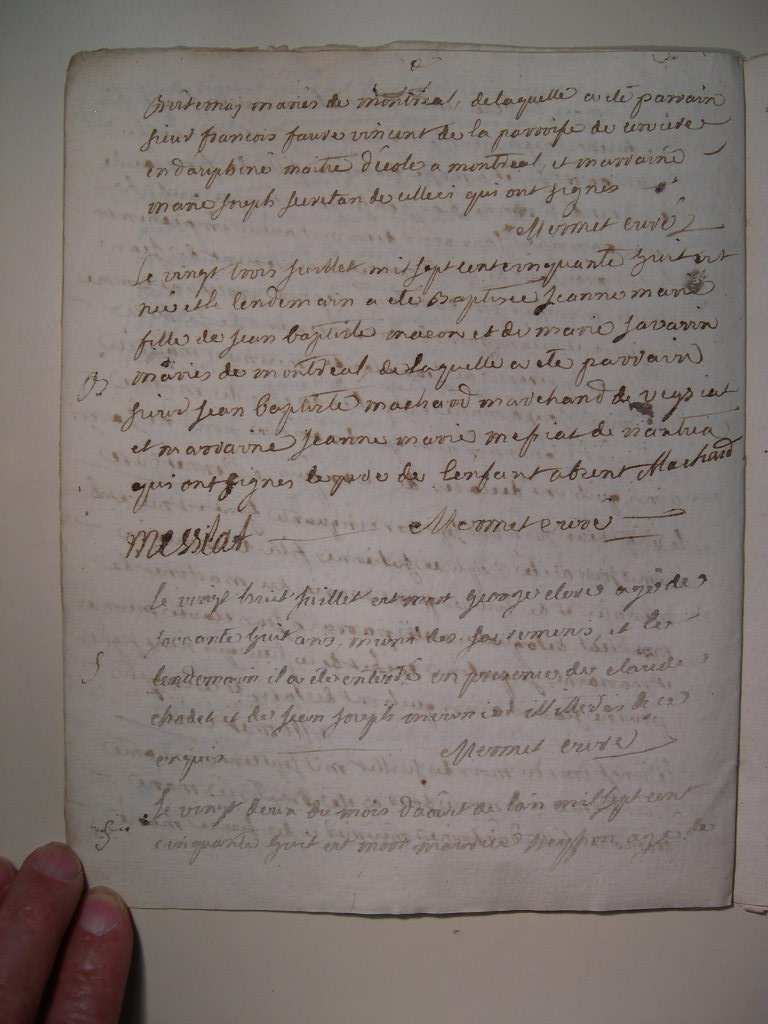 mariés de montreal, delaquelle a eté parrain
sieur francois faure vincent de la parroisse de cerviere
en dauphiné maitre d'ecole a montreal, et marraine
marie joseph secretan de celleci qui ont signes
Mermet curé
Le vingt trois juillet mil sept cent cinquante huit est
née et le lendemain a eté Baptisée jeanne marie
fille de jean baptiste macon et de marie savarin
mariés de montreal de laquelle a ete parrain
sieur jean baptiste machard marchand de veysiat
et marraine jeanne marie messiat de nantua
qui ont signes le pere de lenfant absent Machard
messiat Mermet curé
Le vingt huit juillet est mort george clerc agé de
soixante huit ans, muni des sacremens, et le
lendemain il a ete enterré en presence de claude
chodet et de jean joseph meunier illiterés de ce
enquis Mermet curé
Le vingt deux du mois d'aout de l'an mil sept cent
cinquante huit est mort maurice agé de